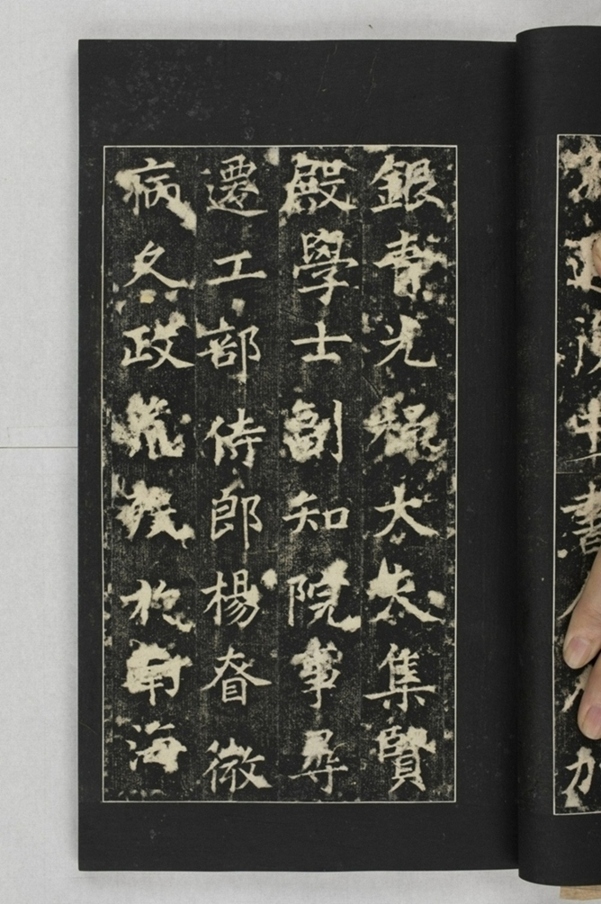 銀青光祿大夫集賢
殿學士副知院事尋
遷工部侍郎楊眘微
病久政荒於南海
書